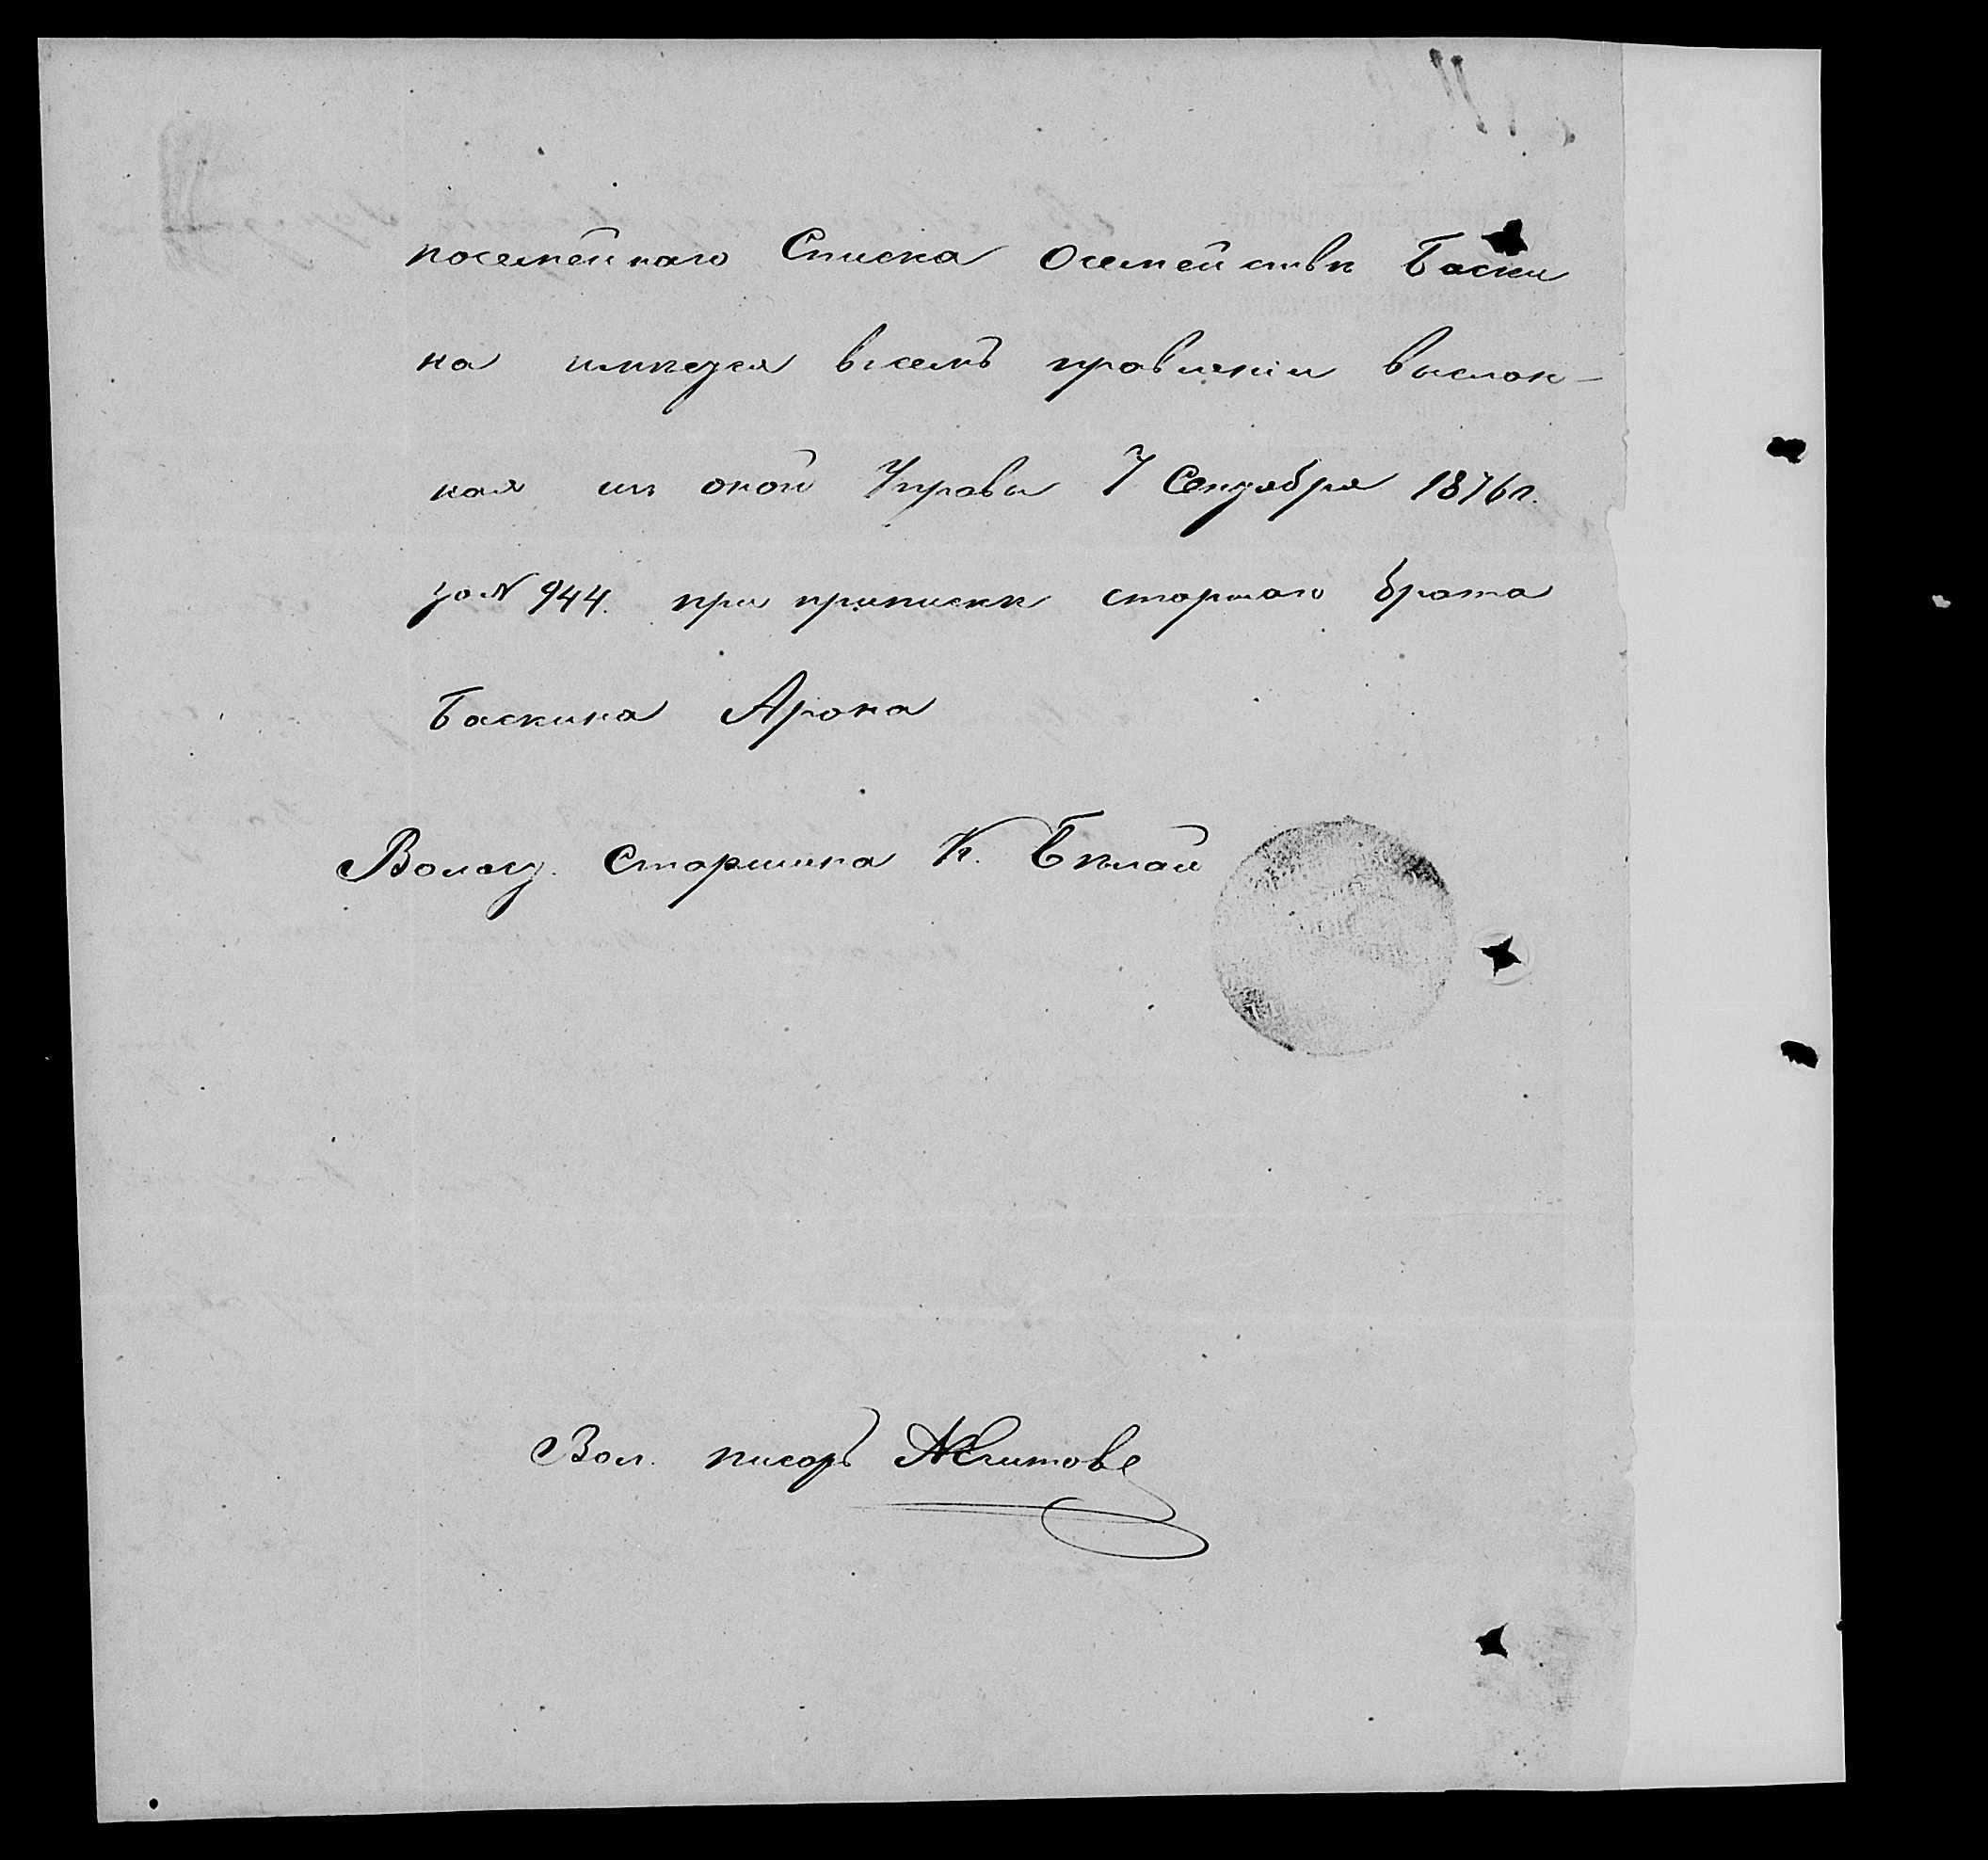 посемейнаго Списка осемействѣ Баски
на имѣется всемъ правленіи выслан-
ная изъ оной Управы 7 Сентября 1876 г.
за № 944. при припискѣ старшаго брата
Баскина Арона
Волост. Старшина К. Бѣлай
Вол. писарь